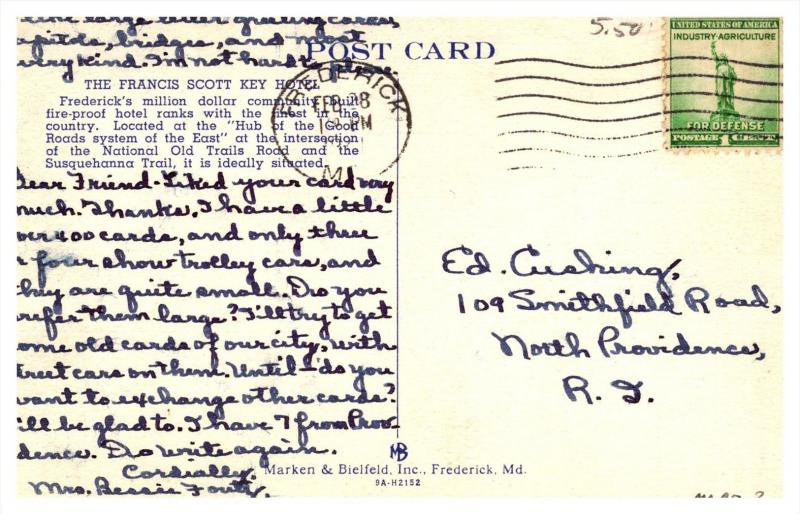 large letter greeting cards,
capitols, bridges, and most
every kind. I'm not hard to please
POST CARD
5.50
UNITED STATES OF AMERICA
INDUSTRY·AGRICULTURE
FOR DEFENSE
POSTAGE 1 CENT
FREDERICK
FEB 28
PM
MD
THE FRANCIS SCOTT KEY HOTEL
Frederick's million dollar community built
fire-proof hotel ranks with the finest in the
country. Located at the "Hub of the Good
Roads system of the East" at the intersection
of the National Old Trails Road and the
Susquehanna Trail, it is ideally situated.
Dear Friend- Liked your card very
much. Thanks. I have a little
over 400 cards, and only three
r four show trolley cars, and
they are quite small. Do you
prefer them large? I'll try to get
some old cards of our city, with
street cars on them. Until- do you
want to exchange other cards?
I'll be glad to. I have 7 from Prov-
dence. Do write again.
Cordially,
Mrs. Bessie
Ed. Cushing,
109 Smithfield Road,
North Providence,
R. I.
MB
Marken & Bielfeld, Inc., Frederick, Md.
9A-H2152